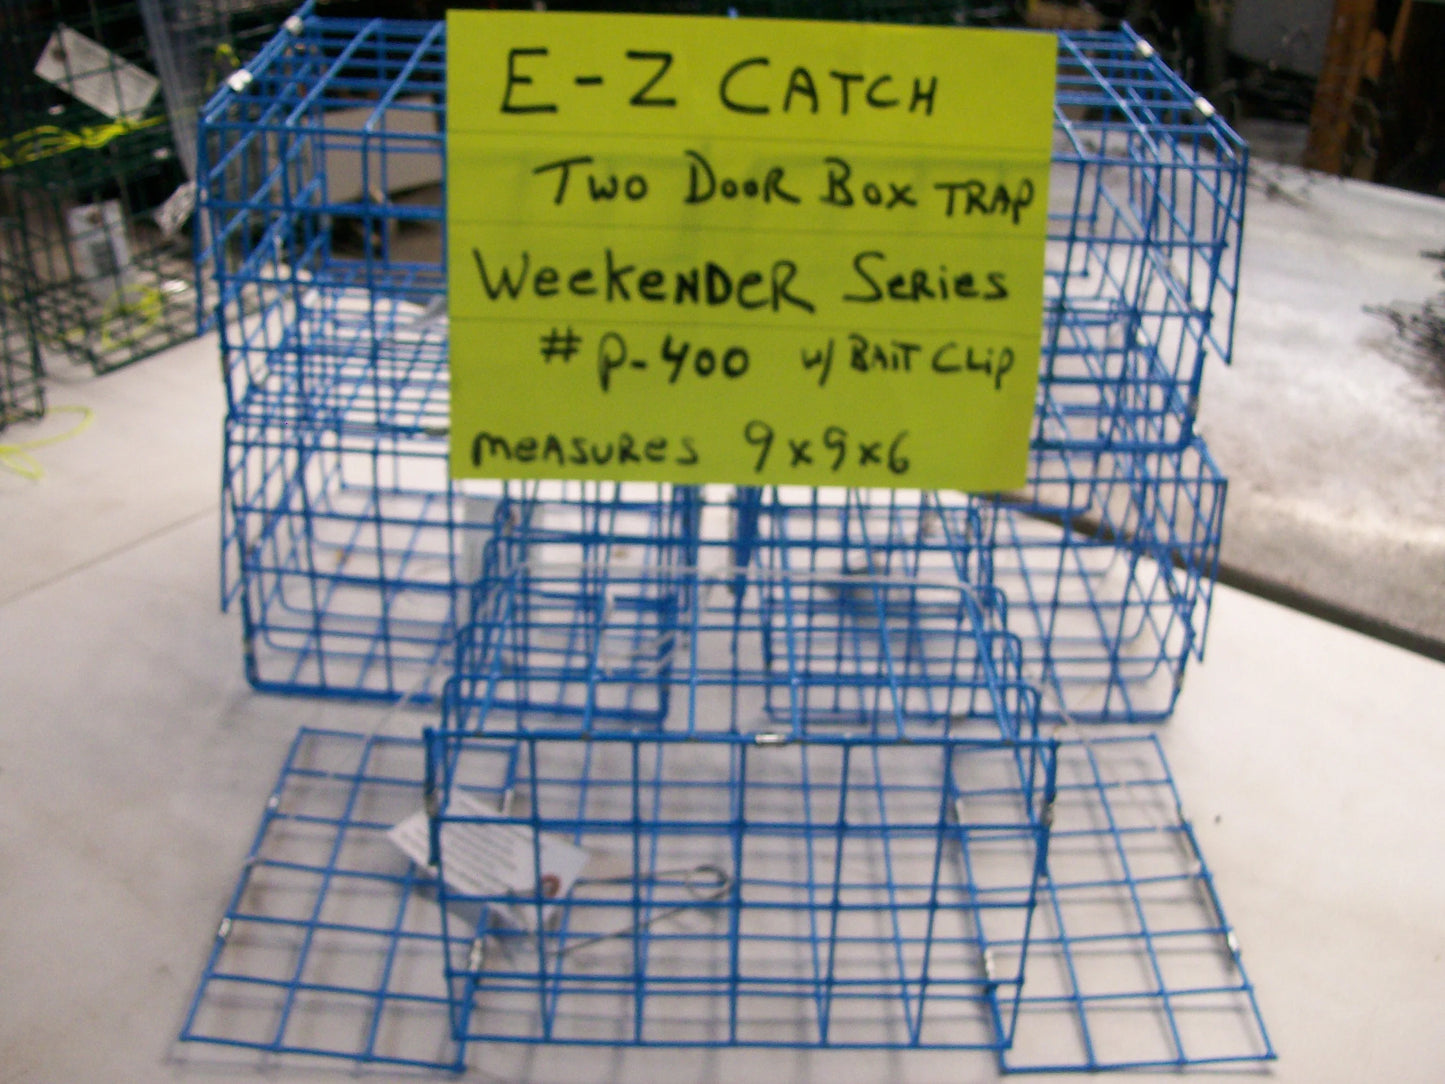 E-Z CATCH
TWO DOOR BOX TRAP
WEEKENDER SERIES
# P-400 W/ BAIT CLIP
MEASURES 9x9x6